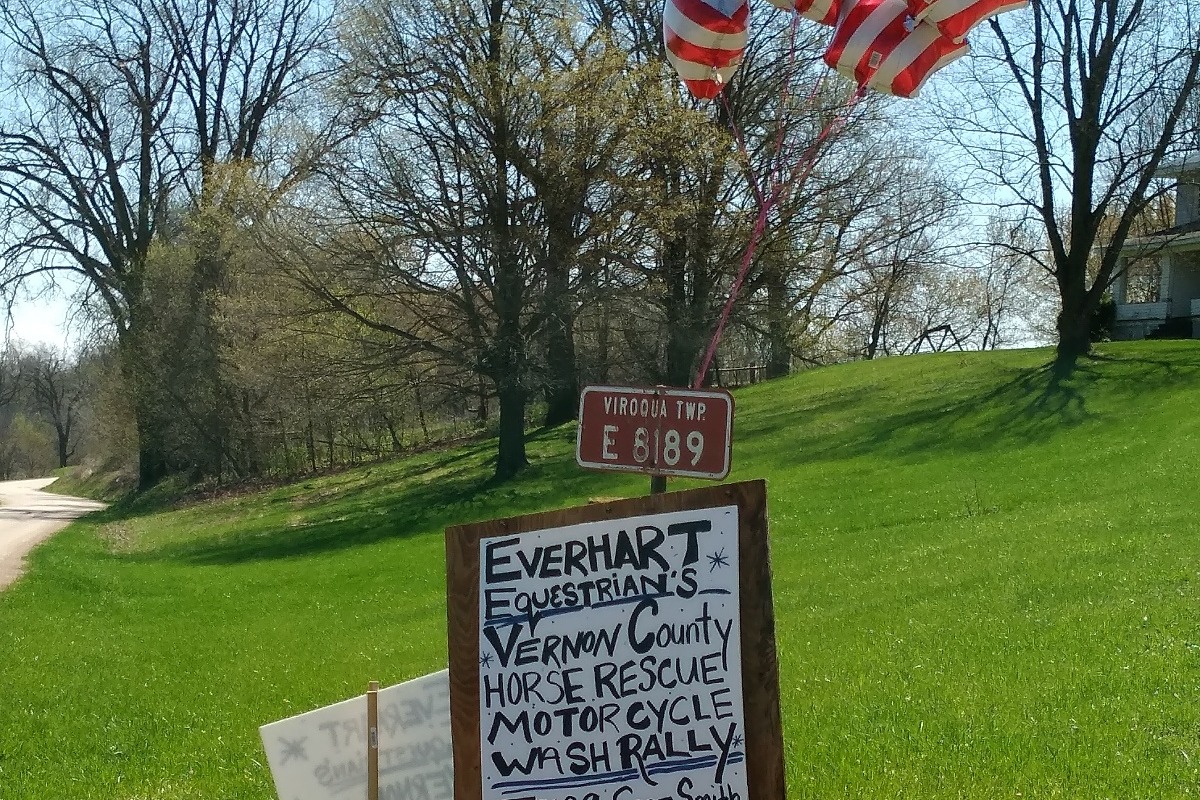 VIROQUA TWP.
E 8189
EVERHART
EQUESTRIAN'S
VERNON County
HORSE RESCUE
MOTORCYCLE
WASH RALLY
Smith
EVERHART